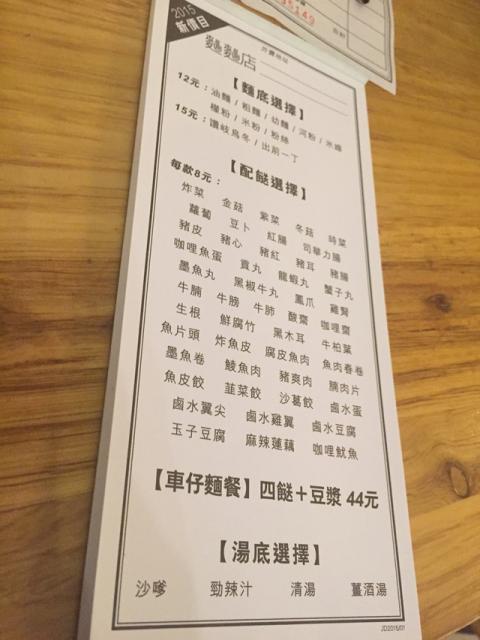 2015
新價目
麵麵店
【麵底選擇】
12元：油麵/粗麵/幼麵/河粉/米線
檬粉/米粉/粉絲
15元：讚岐烏冬/出前一丁
【配餸選擇】
每款8元：
炸菜 金菇 紫菜 冬菇 時菜
蘿蔔 豆卜 紅腸 司華力腸
豬皮 豬心 豬紅 豬耳 豬腸
咖哩魚蛋 貢丸 龍蝦丸 蟹子丸
墨魚丸 黑椒牛丸 鳳爪 雞腎
牛腩 牛膀 牛肺 酸齋 咖哩齋
生根 鮮腐竹 黑木耳 牛柏葉
魚片頭 炸魚皮 腐皮魚肉 魚肉春卷
墨魚卷 鯪魚肉 豬爽肉 腩肉片
魚皮餃 韮菜餃 沙葛餃 鹵水蛋
鹵水翼尖 鹵水雞翼 鹵水豆腐
玉子豆腐 麻辣蓮藕 咖哩魷魚
【車仔麵餐】四餸＋豆漿 44元
【湯底選擇】
沙嗲 勁辣汁 清湯 薑酒湯
JD2015/01